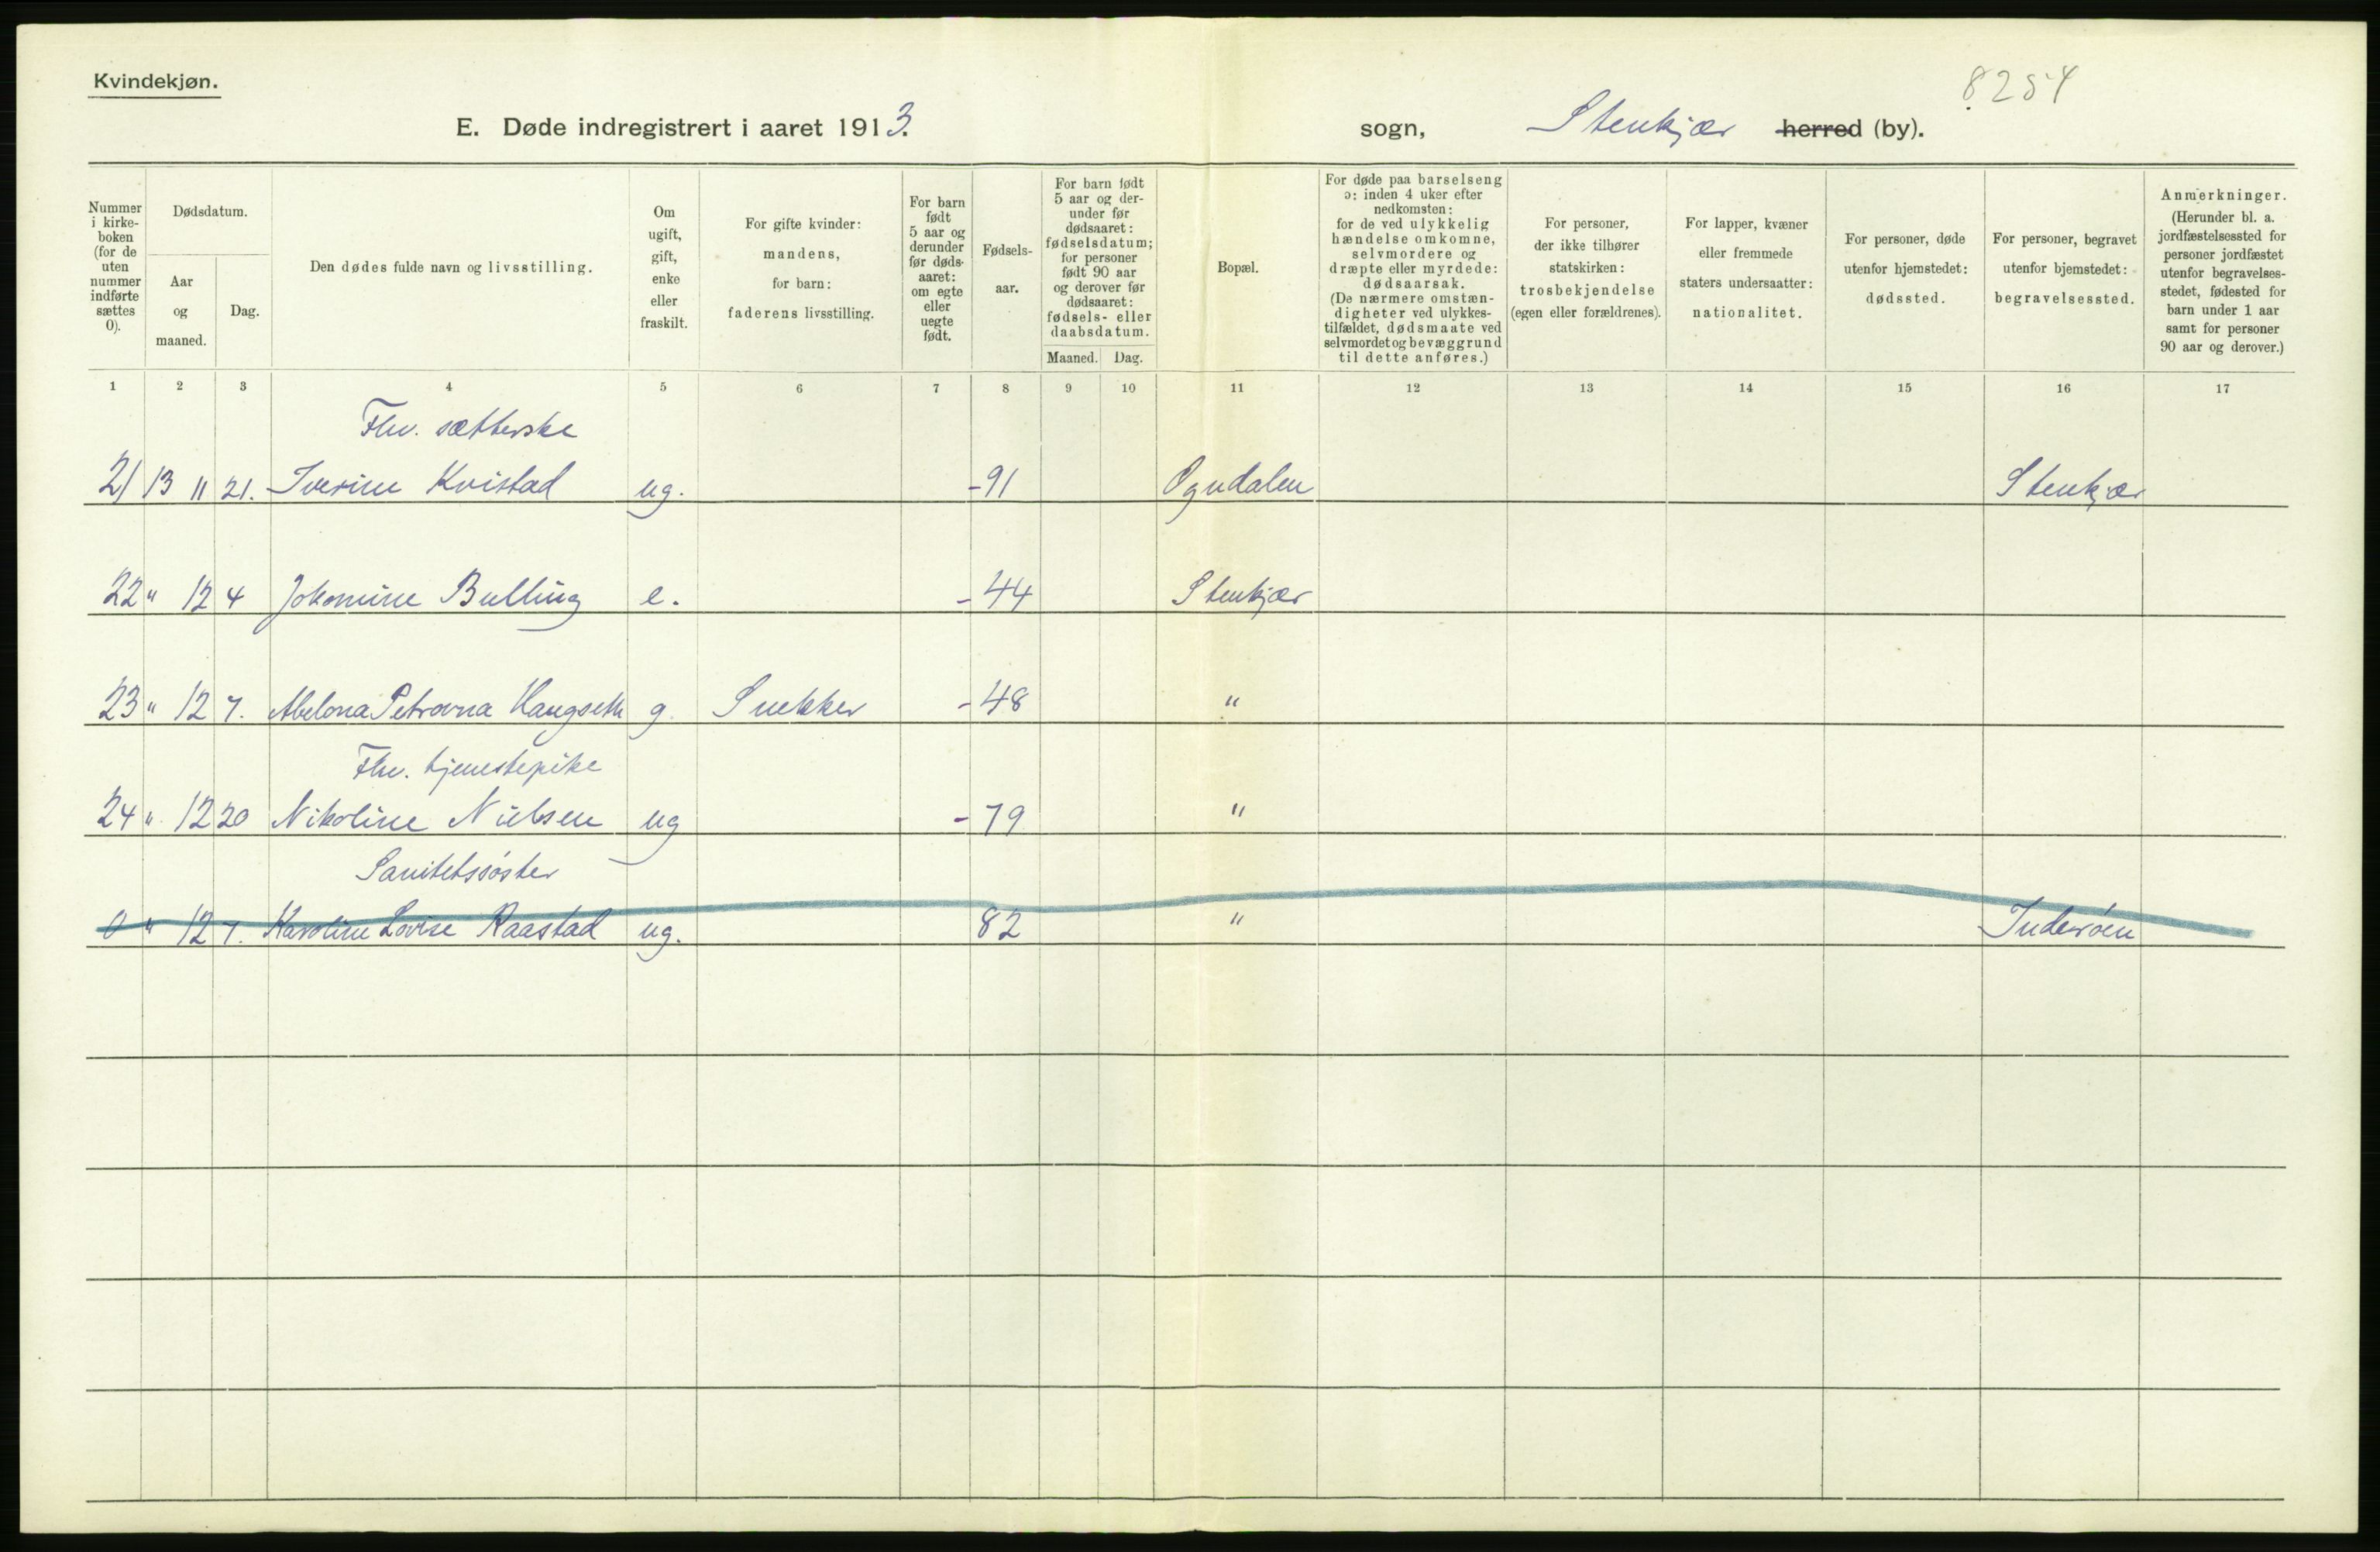 Kvindekjøn.
8254
E. Døde indregistrert i aaret 1913. sogn, Stenkjær herred (by).
Nummer i kirke-boken (for de uten nummer indførte sættes 0).
Dødsdatum.
Aar og maaned.
Dag.
Den dødes fulde navn og livsstilling.
Om ugift, gift, enke eller fraskilt.
For gifte kvinder: mandens, for barn: faderens livsstilling.
For barn født 5 aar og derunder før døds-aaret: om egte eller uegte født.
Fødsels-aar.
For barn født 5 aar og der-under før dødsaaret: fødselsdatum; for personer født 90 aar og derover før dødsaaret: fødsels- eller daabsdatum.
Maaned. Dag.
Bopæl.
For døde paa barselseng ɔ: inden 4 uker efter nedkomsten: for de ved ulykkelig hændelse omkomne, selvmordere og dræpte eller myrdede: dødsaarsak. (De nærmere omstæn-digheter ved ulykkes-tilfældet, dødsmaate ved selvmordet og bevæggrund til dette anføres.)
For personer, der ikke tilhører statskirken: trosbekjendelse (egen eller forældrenes).
For lapper, kvæner eller fremmede staters undersaatter: nationalitet.
For personer, døde utenfor hjemstedet: dødssted.
For personer, begravet utenfor hjemstedet: begravelsessted.
Anmerkninger. (Herunder bl. a. jordfæstelsessted for personer jordfæstet utenfor begravelses-stedet, fødested for barn under 1 aar samt for personer 90 aar og derover.)
1 2 3 4 5 6 7 8 9 10 11 12 13 14 15 16 17
Fhv. sætterske
21 13 11 21. Iverine Kvistad ug. -91 Ogndalen Stenkjær
22 " 12 4 Jokomine Bulling e. -44 Stenkjær
23 " 12 7. Abelona Petrovna Haugseth g. Snekker -48 "
Fhv. tjenestepike
24 " 12 20 Nikoline Nielsen ug -79 "
Sanitetssøster
0 " 12 7. Karoline Lovise Raastad ug. 82 " Inderøen